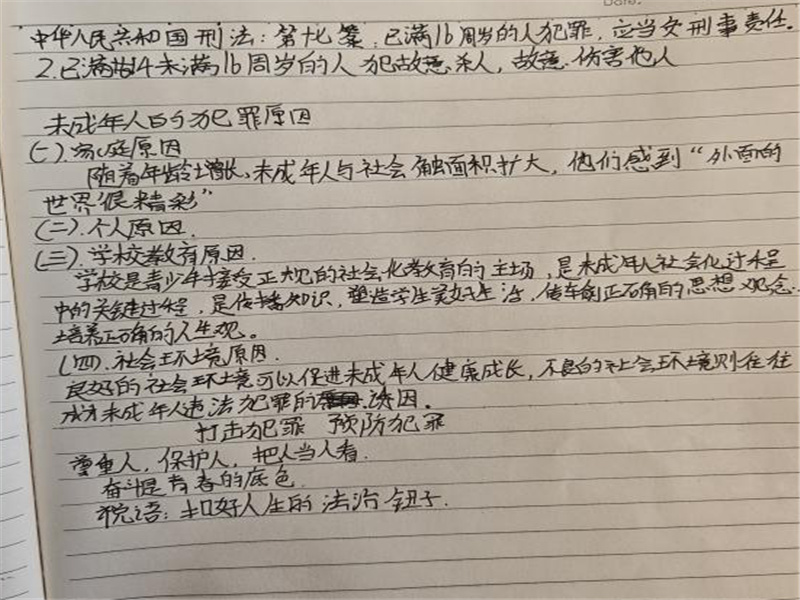 Date:
中华人民共和国刑法：第十七条：已满16周岁的人犯罪，应当负刑事责任。
2.已满14未满16周岁的人 犯故意杀人，故意伤害他人
未成年人的犯罪原因
(一).家庭原因
随着年龄增长、未成年人与社会触面积扩大，他们感到“外面的
世界很精彩”
(二).个人原因.
(三).学校教育原因.
学校是青少年接受正规的社会化教育的主场，是未成年人社会化过程
中的关键过程，是传播知识，塑造学生美好生活，传车俞正确的思想观念.
培养正确的人生观。
(四).社会环境原因.
良好的社会环境可以促进未成年人健康成长，不良的社会环境则往往
成为未成年人违法犯罪的诱因.
打击犯罪 预防犯罪
尊重人，保护人，把人当人看.
奋斗是青春的底色
税语：扣好人生的法治钮子.